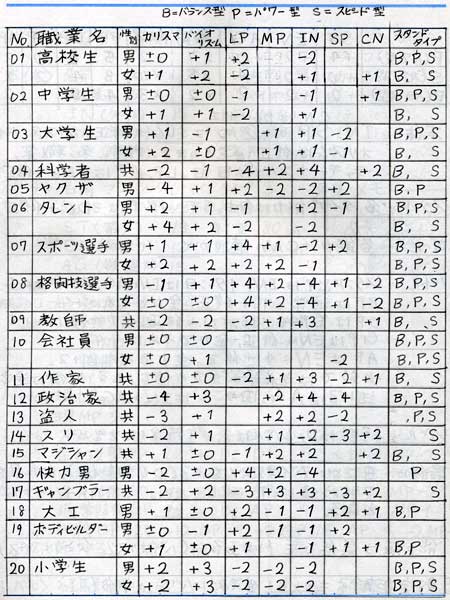 B=バランス型 P=パワー型 S=スピード型
No 職業名 性別 カリスマ バイオリズム LP MP IN SP CN スタンドタイプ
01 高校生 男 ±0 +1 +2 -2 B,P,S
女 +1 +2 -2 +1 +1 B, S
02 中学生 男 ±0 ±0 -1 -1 +1 B,P,S
女 +1 +1 -2 +1 B, S
03 大学生 男 +1 -1 +1 +1 -2 B,P,S
女 +2 ±0 +1 +1 -1 B, S
04 科学者 共 -2 -1 -4 +2 +4 +2 B, S
05 ヤクザ 男 -4 +1 +2 -2 -2 +2 B,P
06 タレント 男 +2 +1 -1 +2 -1 B,P,S
女 +4 +2 -2 -2 B, S
07 スポーツ選手 男 +1 +1 +4 +1 -2 +2 B,P,S
女 +2 +2 +2 +2 -1 B,P,S
08 格闘技選手 男 -1 +1 +4 +2 -4 +1 -2 B,P,S
女 ±0 ±0 +4 +2 -4 +1 -2 B,P,S
09 教師 共 -2 -2 -2 +1 +3 +1 B, S
10 会社員 男 ±0 ±0 B,P,S
女 ±0 +1 -2 B,P,S
11 作家 共 ±0 ±0 -2 +1 +3 -2 +1 B, S
12 政治家 共 -4 +3 +2 +4 -4 B,P,S
13 盗人 共 -3 +1 +2 +2 -2 ,P,S
14 スリ 共 -2 +1 +1 -2 -3 +2 S
15 マジシャン 共 +1 ±0 -1 +2 +2 +2 B, S
16 快力男 男 -2 ±0 +4 -2 -4 P
17 ギャンブラー 共 -2 +2 -3 +3 +3 -3 +2 S
18 大工 男 +1 ±0 +2 -1 -1 +2 +1 B,P
19 ボディビルダー 男 ±0 -1 +2 -1 -1 +2
女 +1 ±0 +1 -1 +1 +1 B,P
20 小学生 男 +2 +3 -2 -2 -2 B,P,S
女 +2 +3 -2 -2 -2 B,P,S